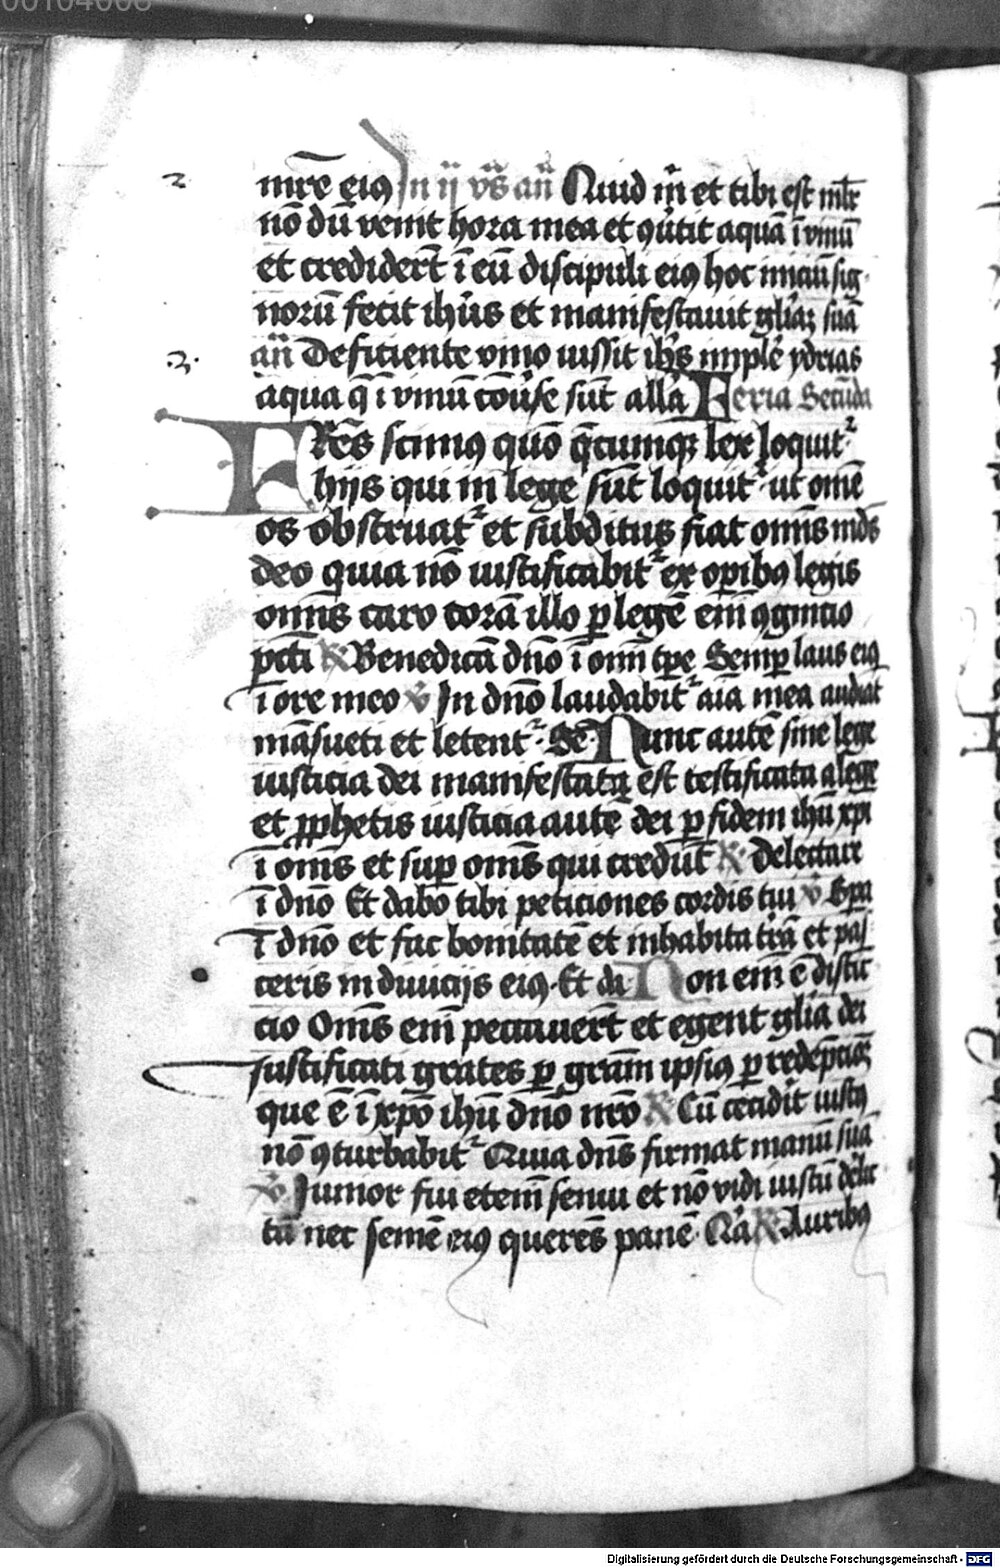 00104008
2
mr̄e eiꝯ In ij vs̄ an̄ Quid m̄ et tibi est ml̄r
nō dū venit hora mea et ꝯu̾tit aquā ī vinū
et credidert̄ ī eū discipuli eiꝯ hoc iniciū sig-
norū fecit ihūs et manifestauit gl̄iaꝫ suā
3
an̄ Deficiente vino iussit ihs̄ implē ydrias
aqua q̄ ī vinū cōu̾se sūt all̄a Feria Secūda
FRēs scimꝯ quō q̄cumqꝫ lex loquit᷑
hijs qui in lege sūt loquit᷑ ut omē
os obstruat᷑ et subditus fiat omīs mds̄
deo quia nō iustificabit᷑ ex oꝑibꝯ legis
omīs caro corā illo ꝑ legē em̄ ꝯgnitio
pcc̄ti ℟ Benedicā dn̄o ī omī tꝑe Semꝑ laus eiꝯ
ī ore meo ℣ In dn̄o laudabit᷑ aīa mea audiāt
māsueti et letent᷑ Sē Nunc autē sine lege
iusticia dei manifestata est testificata a lege
et ꝓphetis iusticia autē dei ꝑ fidem ihū xpī
ī omīs et suꝑ omīs qui credūt ℟ Delectare
ī dn̄o Et dabo tibi peticiones cordis tui ℣ Spa
ī dn̄o et fac bonitatē et inhabita tr̄ā et pas-
ceris in diuicijs eiꝯ Et da Non em̄ ē distīc
cio Omīs em̄ peccauert̄ et egent gl̄ia dei
Justificati grates ꝑ grām ipsiꝯ ꝑ redēpcioꝫ
que ē ī xp̄o ihū dn̄o nr̄o ℟ Cū cecidīt iustꝯ
nō ꝯturbabit᷑ Quia dn̄s firmat manū suā
℣ Junior fui etem̄ senui et nō vidi iustū d̾elic
tū nec semē eiꝯ querēs panē Qīa ℟ Auribꝯ
Digitalisierung gefördert durch die Deutsche Forschungsgemeinschaft - DFG